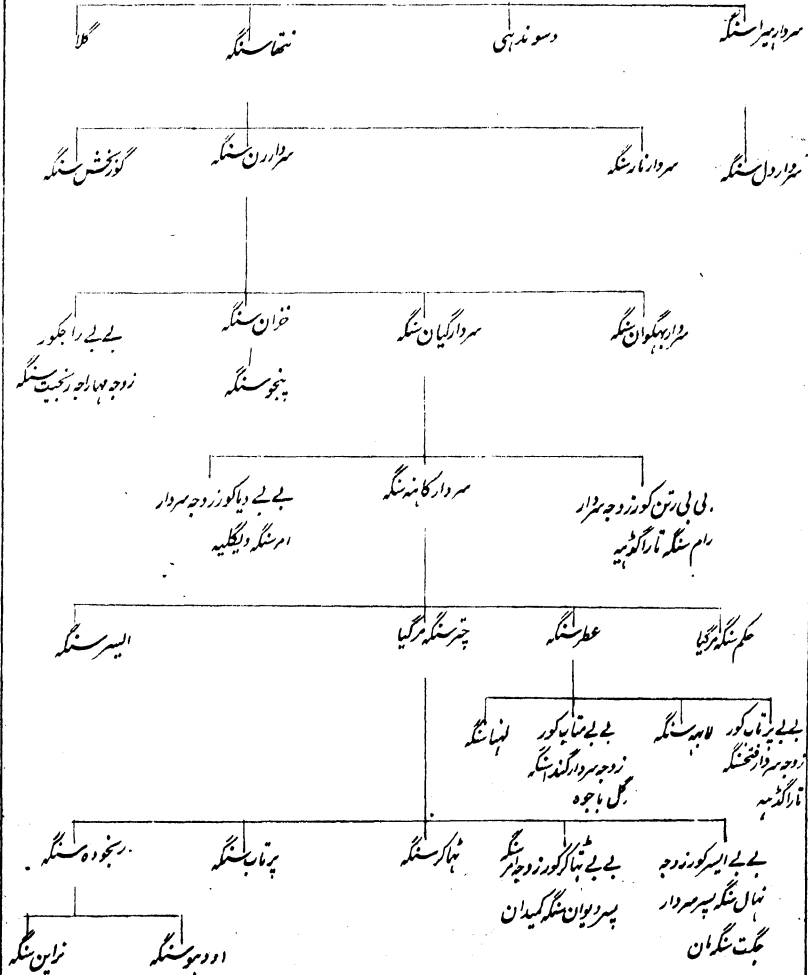 سردار ہیرا سنگہ
دسوندہی
نتھا سنگہ
گلا
سردار دل سنگہ
سردار نار سنگہ
سردار رن سنگہ
گور بخش سنگہ
سردار بہگوان سنگہ
سردار گیان سنگہ
خزان سنگہ
بے بے راجکور
زوجہ مہاراجہ رنجیت سنگہ
پنجو سنگہ
بی بی رتن کور زوجہ سردار
رام سنگہ تاراگڈہیہ
سردار کاہنہ سنگہ
بے بے دیا کور زوجہ سردار
امر سنگہ ویگلیہ
حکم سنگہ مرگیا
عطر سنگہ
چتر سنگہ مرگیا
ایسر سنگہ
بے بے پرتاب کور
زوجہ سردار فتحسنگہ
تاراگڈہیہ
لابہہ سنگہ
بے بے متاب کور
زوجہ سردار گنڈا سنگہ
گل باجوہ
لہنا سنگہ
بے بے ایسر کور زوجہ
نہال سنگہ پسر سردار
جگت سنگہ مان
بے بے ٹہاکر کور زوجہ امر سنگہ
پسر دیوان سنگہ کمیدان
ٹہاکر سنگہ
پرتاب سنگہ
رنجودہ سنگہ
اودہو سنگہ
نراین سنگہ